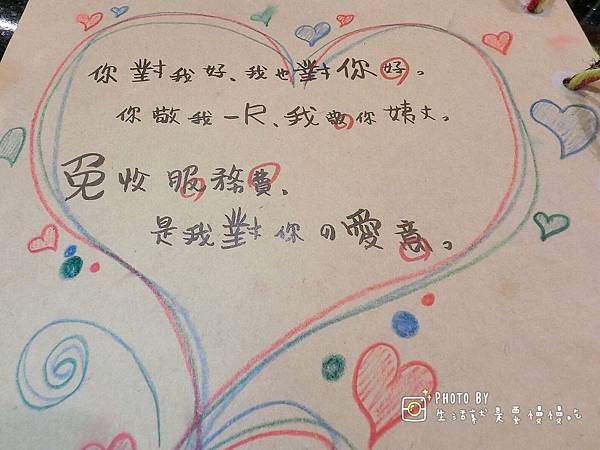 你對我好、我也對你好。
你敬我一R、我敬你姨丈。
免收服務費,
是我對你の愛意。
PHOTO BY
生活就是要慢慢吃